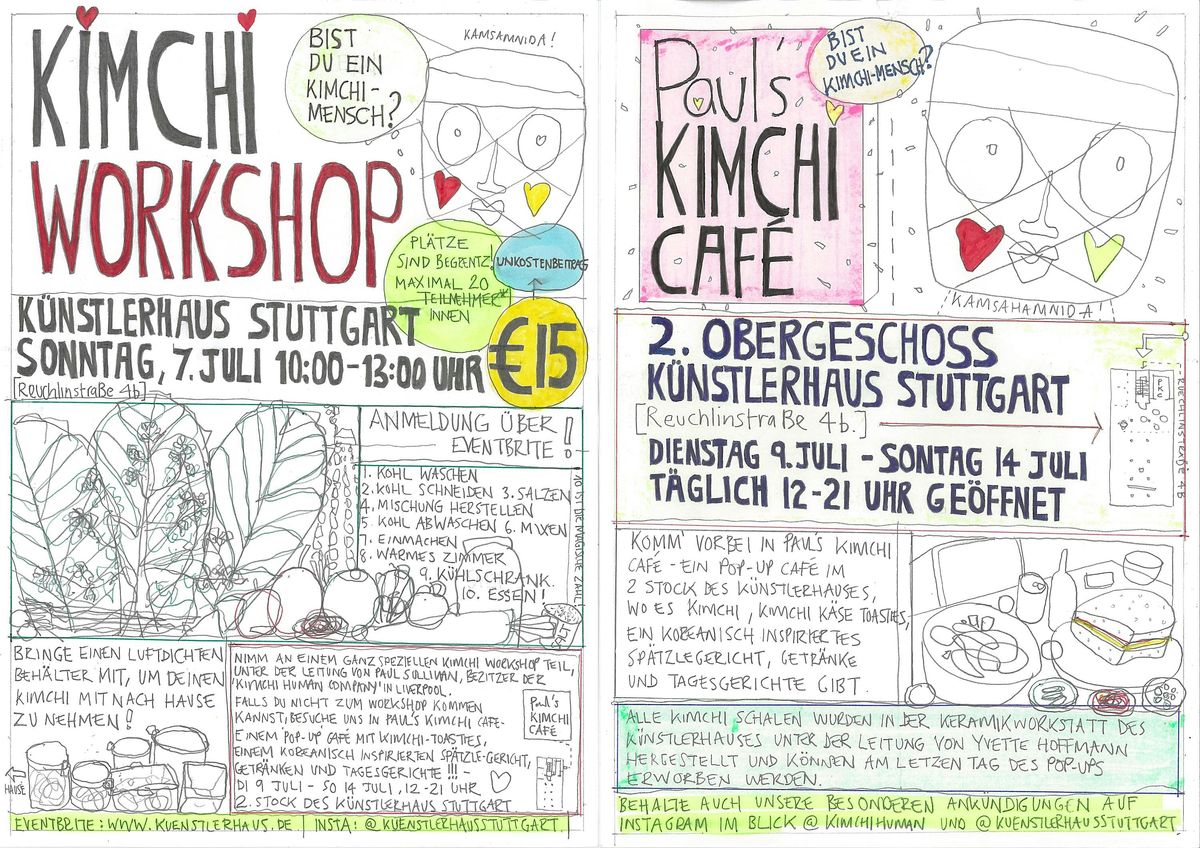 KIMCHI
WORKSHOP
BIST
DU EIN
KIMCHI-
MENSCH?
KAMSAMNIDA!
PLÄTZE
SIND BEGRENTZ!
MAXIMAL 20
TEILNEHMER*
INNEN
UNKOSTENBEITRAG
€15
KÜNSTLERHAUS STUTTGART
SONNTAG, 7. JULI 10:00-13:00 UHR
[Reuchlinstraße 4b.]
ANMELDUNG ÜBER
EVENTBRITE!
1. KOHL WASCHEN
2. KOHL SCHNEIDEN 3. SALZEN
4. MISCHUNG HERSTELLEN
5. KOHL ABWASCHEN 6. MIXEN
7. EINMACHEN
8. WARMES ZIMMER
9. KÜHLSCHRANK.
10. ESSEN!
10 IST DIE MAGISCHE ZAHL!
BRINGE EINEN LUFTDICHTEN
BEHÄLTER MIT, UM DEINEN
KIMCHI MIT NACH HAUSE
ZU NEHMEN!
HAUSE
NIMM AN EINEM GANZ SPEZIELLEN KIMCHI WORKSHOP TEIL,
UNTER DER LEITUNG VON PAUL SULLIVAN, BEZITZER DER
'KIMCHI HUMAN COMPANY' IN LIVERPOOL.
FALLS DU NICHT ZUM WORKSHOP KOMMEN
KANNST, BESUCHE UNS IN PAUL'S KIMCHI CAFE-
EINEM POP-UP CAFÉ MIT KIMCHI-TOASTIES,
EINEM KOREANISCH INSPIRIERTEN SPÄTZLE-GERICHT,
GETRÄNKEN UND TAGESGERICHTE !!! -
DI 9 JULI - SO 14 JULI, 12-21 UHR
2. STOCK DES KÜNSTLERHAUS STUTTGART.
Paul's
KIMCHI
CAFÉ
EVENTBRITE: WWW.KUENSTLERHAUS.DE | INSTA: @KUENSTLERHAUSSTUTTGART.
Paul's
KIMCHI
CAFÉ
BIST
DU EIN
KIMCHI-MENSCH?
KAMSAHAMNIDA!
2. OBERGESCHOSS
KÜNSTLERHAUS STUTTGART
[Reuchlinstraße 4b.]
DIENSTAG 9. JULI - SONTAG 14 JULI
TÄGLICH 12-21 UHR GEÖFFNET
KOMM' VORBEI IN PAUL'S KIMCHI
CAFÉ - EIN POP-UP CAFÉ IM
2 STOCK DES KÜNSTLERHAUSES,
WO ES KIMCHI, KIMCHI KÄSE TOASTIES,
EIN KOREANISCH INSPIRIERTES
SPÄTZLEGERICHT, GETRÄNKE
UND TAGESGERICHTE GIBT.
ALLE KIMCHI SCHALEN WURDEN IN DER KERAMIKWORKSTATT DES
KÜNSTLERHAUSES UNTER DER LEITUNG VON YVETTE HOFFMANN
HERGESTELLT UND KÖNNEN AM LETZEN TAG DES POP-UPS
ERWORBEN WERDEN.
BEHALTE AUCH UNSERE BESONDEREN ANKÜNDIGUNGEN AUF
INSTAGRAM IM BLICK @KIMCHIHUMAN UND @KUENSTLERHAUSSTUTTGART